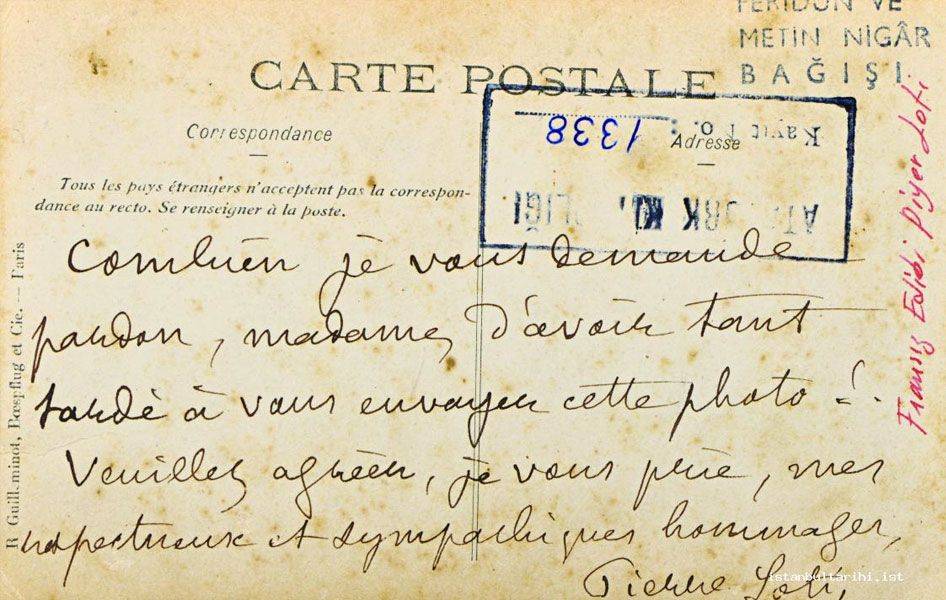 FERİDUN VE
METİN NİGÂR
BAĞIŞI
CARTE POSTALE
Correspondance
Adresse
Kayıt No. : 1338
Tous les pays étrangers n'acceptent pas la correspon-
dance au recto. Se renseigner à la poste.
Combien je vous demande
pardon, madame, d'avoir tant
tardé à vous envoyer cette photo !.
Veuillez agréer, je vous prie, mes
respectueux et sympathiques hommages,
Pierre Loti,
R Guilleminot, Bœspflug et Cie. — Paris
Fransız Edibi Piyer Loti
istanbultarihi.ist